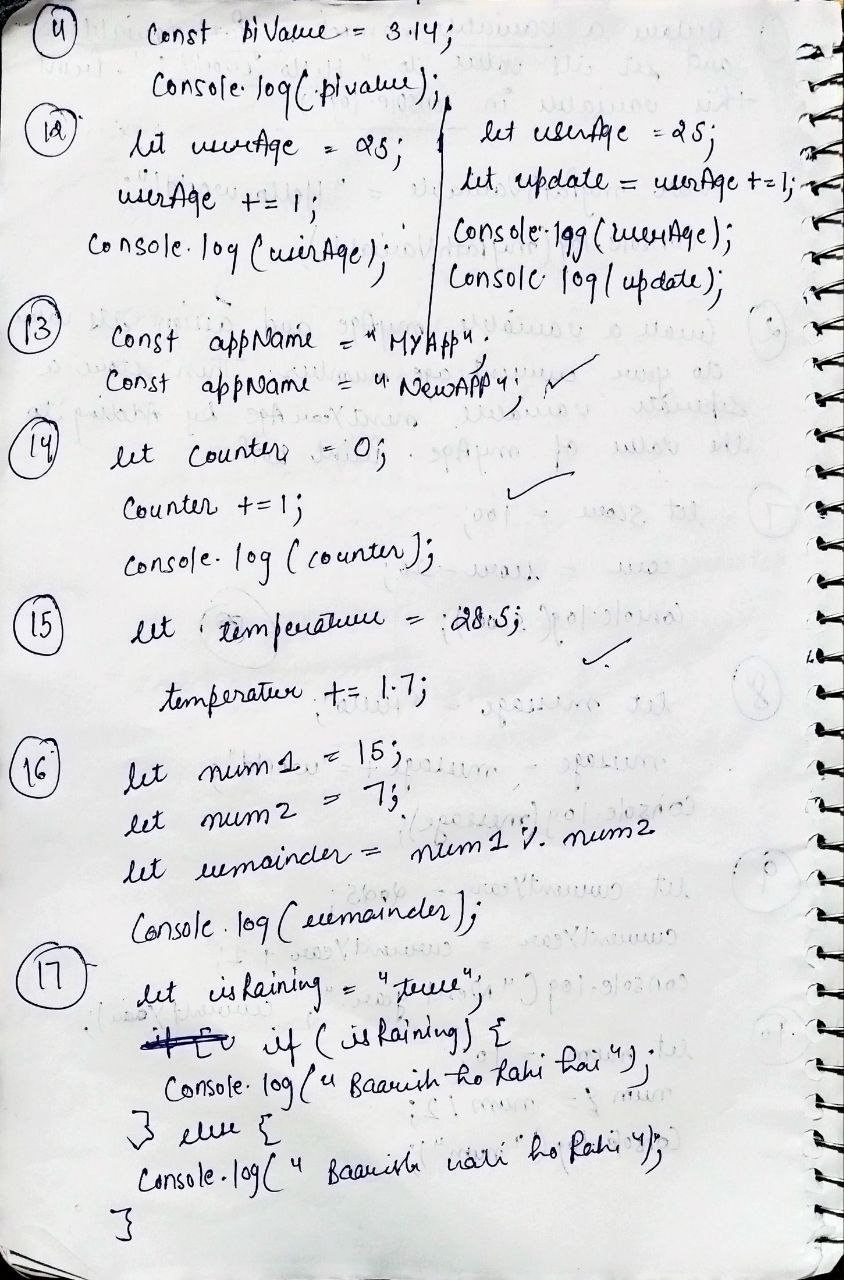 11 Const piValue = 3.14;
Console.log(pivalue);
12 let userAge = 25;
userAge += 1;
Console.log(userAge);
let userAge = 25;
let update = userAge += 1;
Console.log(userAge);
Console.log(update);
13 Const appName = "MYApp";
Const appName = "NewAPP";
14 let counter = 0;
Counter += 1;
Console.log(counter);
15 let temperature = 28.5;
temperatur += 1.7;
16 let num1 = 15;
let num2 = 7;
let remainder = num1 % num2
Console.log(remainder);
17 let isRaining = "true";
if (isRaining) {
Console.log("Baarish ho Rahi hai");
} else {
Console.log("Baarish nahi ho Rahi");
}